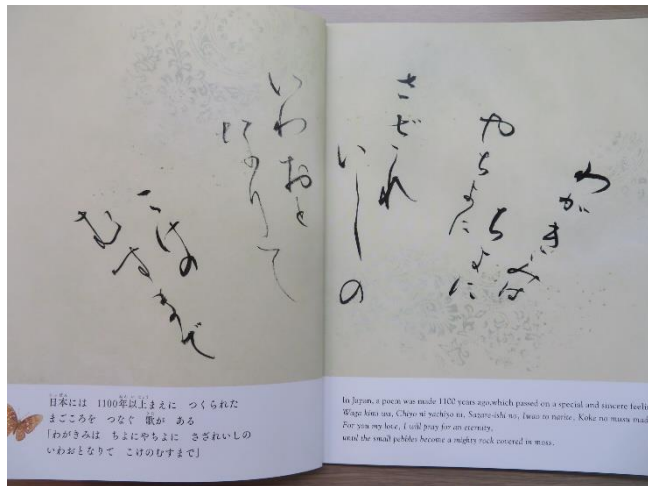 わがきみは
ちよに
やちよに
さざれ
いしの
いわおと
なりて
こけの
むすまで
日本には 1100年以上まえに つくられた
まごころを つなぐ 歌が ある
「わがきみは ちよにやちよに さざれいしの
いわおとなりて こけのむすまで」
In Japan, a poem was made 1100 years ago,which passed on a special and sincere
Waga kimi wa, Chiyo ni yachiyo ni, Sazare-ishi no, Iwao to narite, Koke no musu
For you my love, I will pray for an eternity,
until the small pebbles become a mighty rock covered in moss.